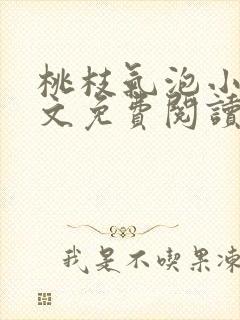 桃枝氣泡小
文免費閱讀
我是不喫果凍